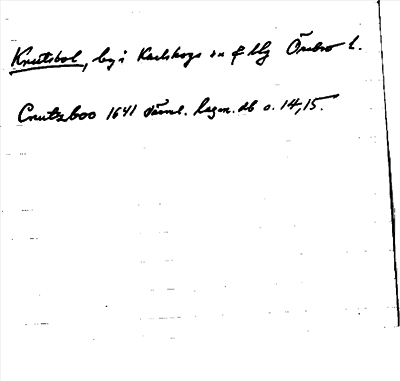 Knutsbol, by i Karlskoga sn o hg Örebro l.
Cnutzboo 1641 Värml. lagm. db s. 14, 15.